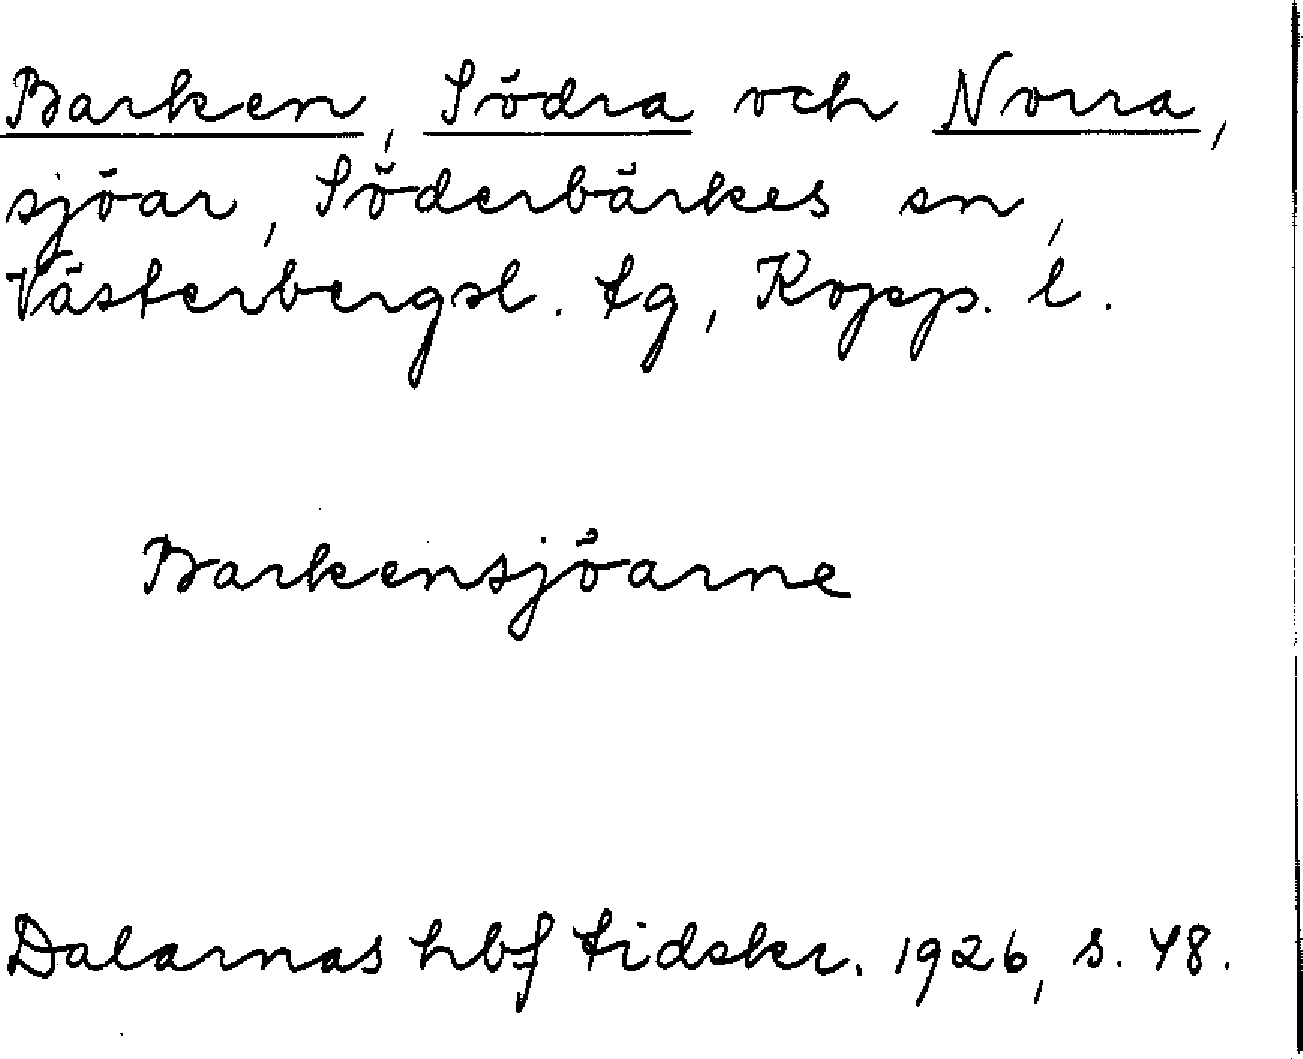 Barken, Södra och Norra,
sjöar, Söderbärkes sn,
Västerbergsl. tg, Kopp. l.
Barkensjöarne
Dalarnas hbf tidskr. 1926, s. 48.